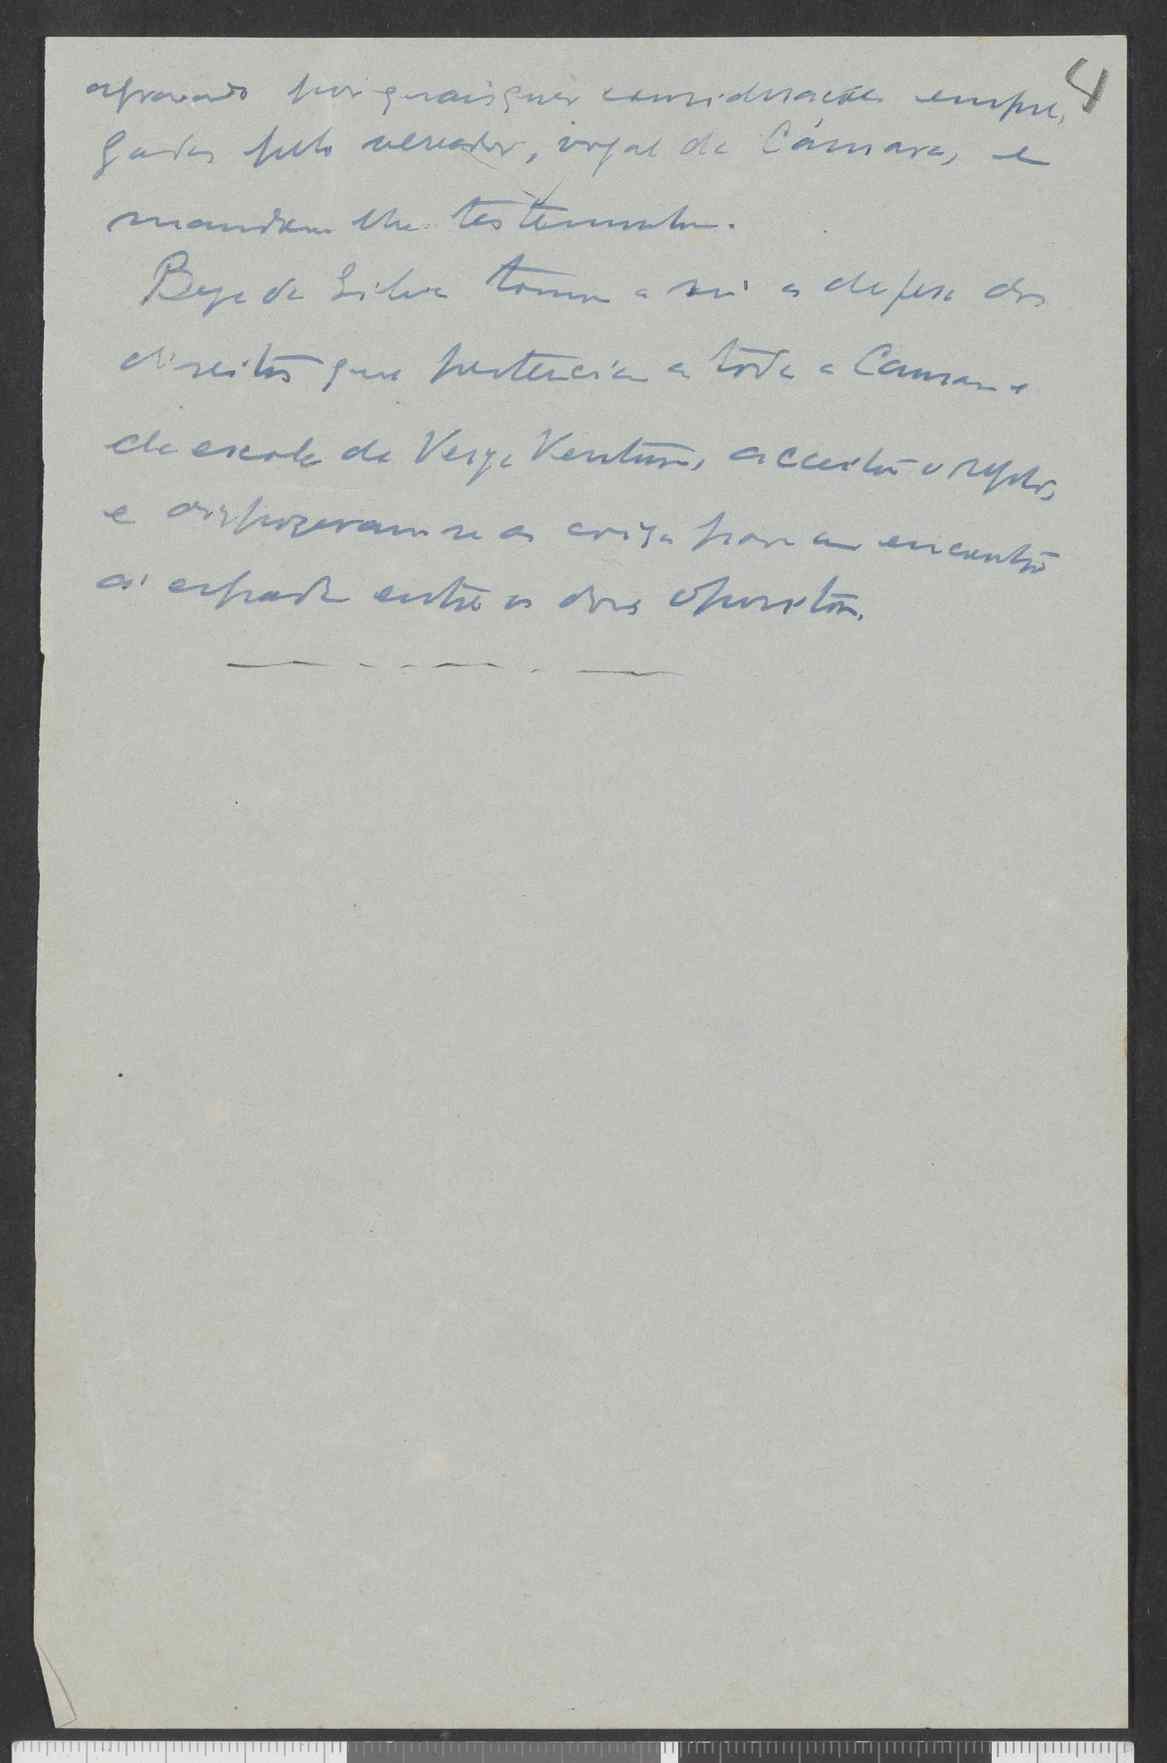 4
por quaisquer considerações empre-
gadas pelo vereador, vogal da Câmara, e
mandam lhe testemunhas.
Beja da Silva toma a si a defesa dos
direitos que pertencia a toda a Camara e
da escola de Veiga Ventura, acceita o repto,
e dispozeram-se as coisas para um encontro
á espada entre os dois